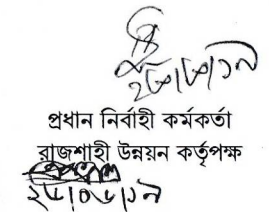 ২৮/৮/১৯
প্রধান নির্বাহী কর্মকর্তা
রাজশাহী উন্নয়ন কর্তৃপক্ষ
২৮/০৮/১৯